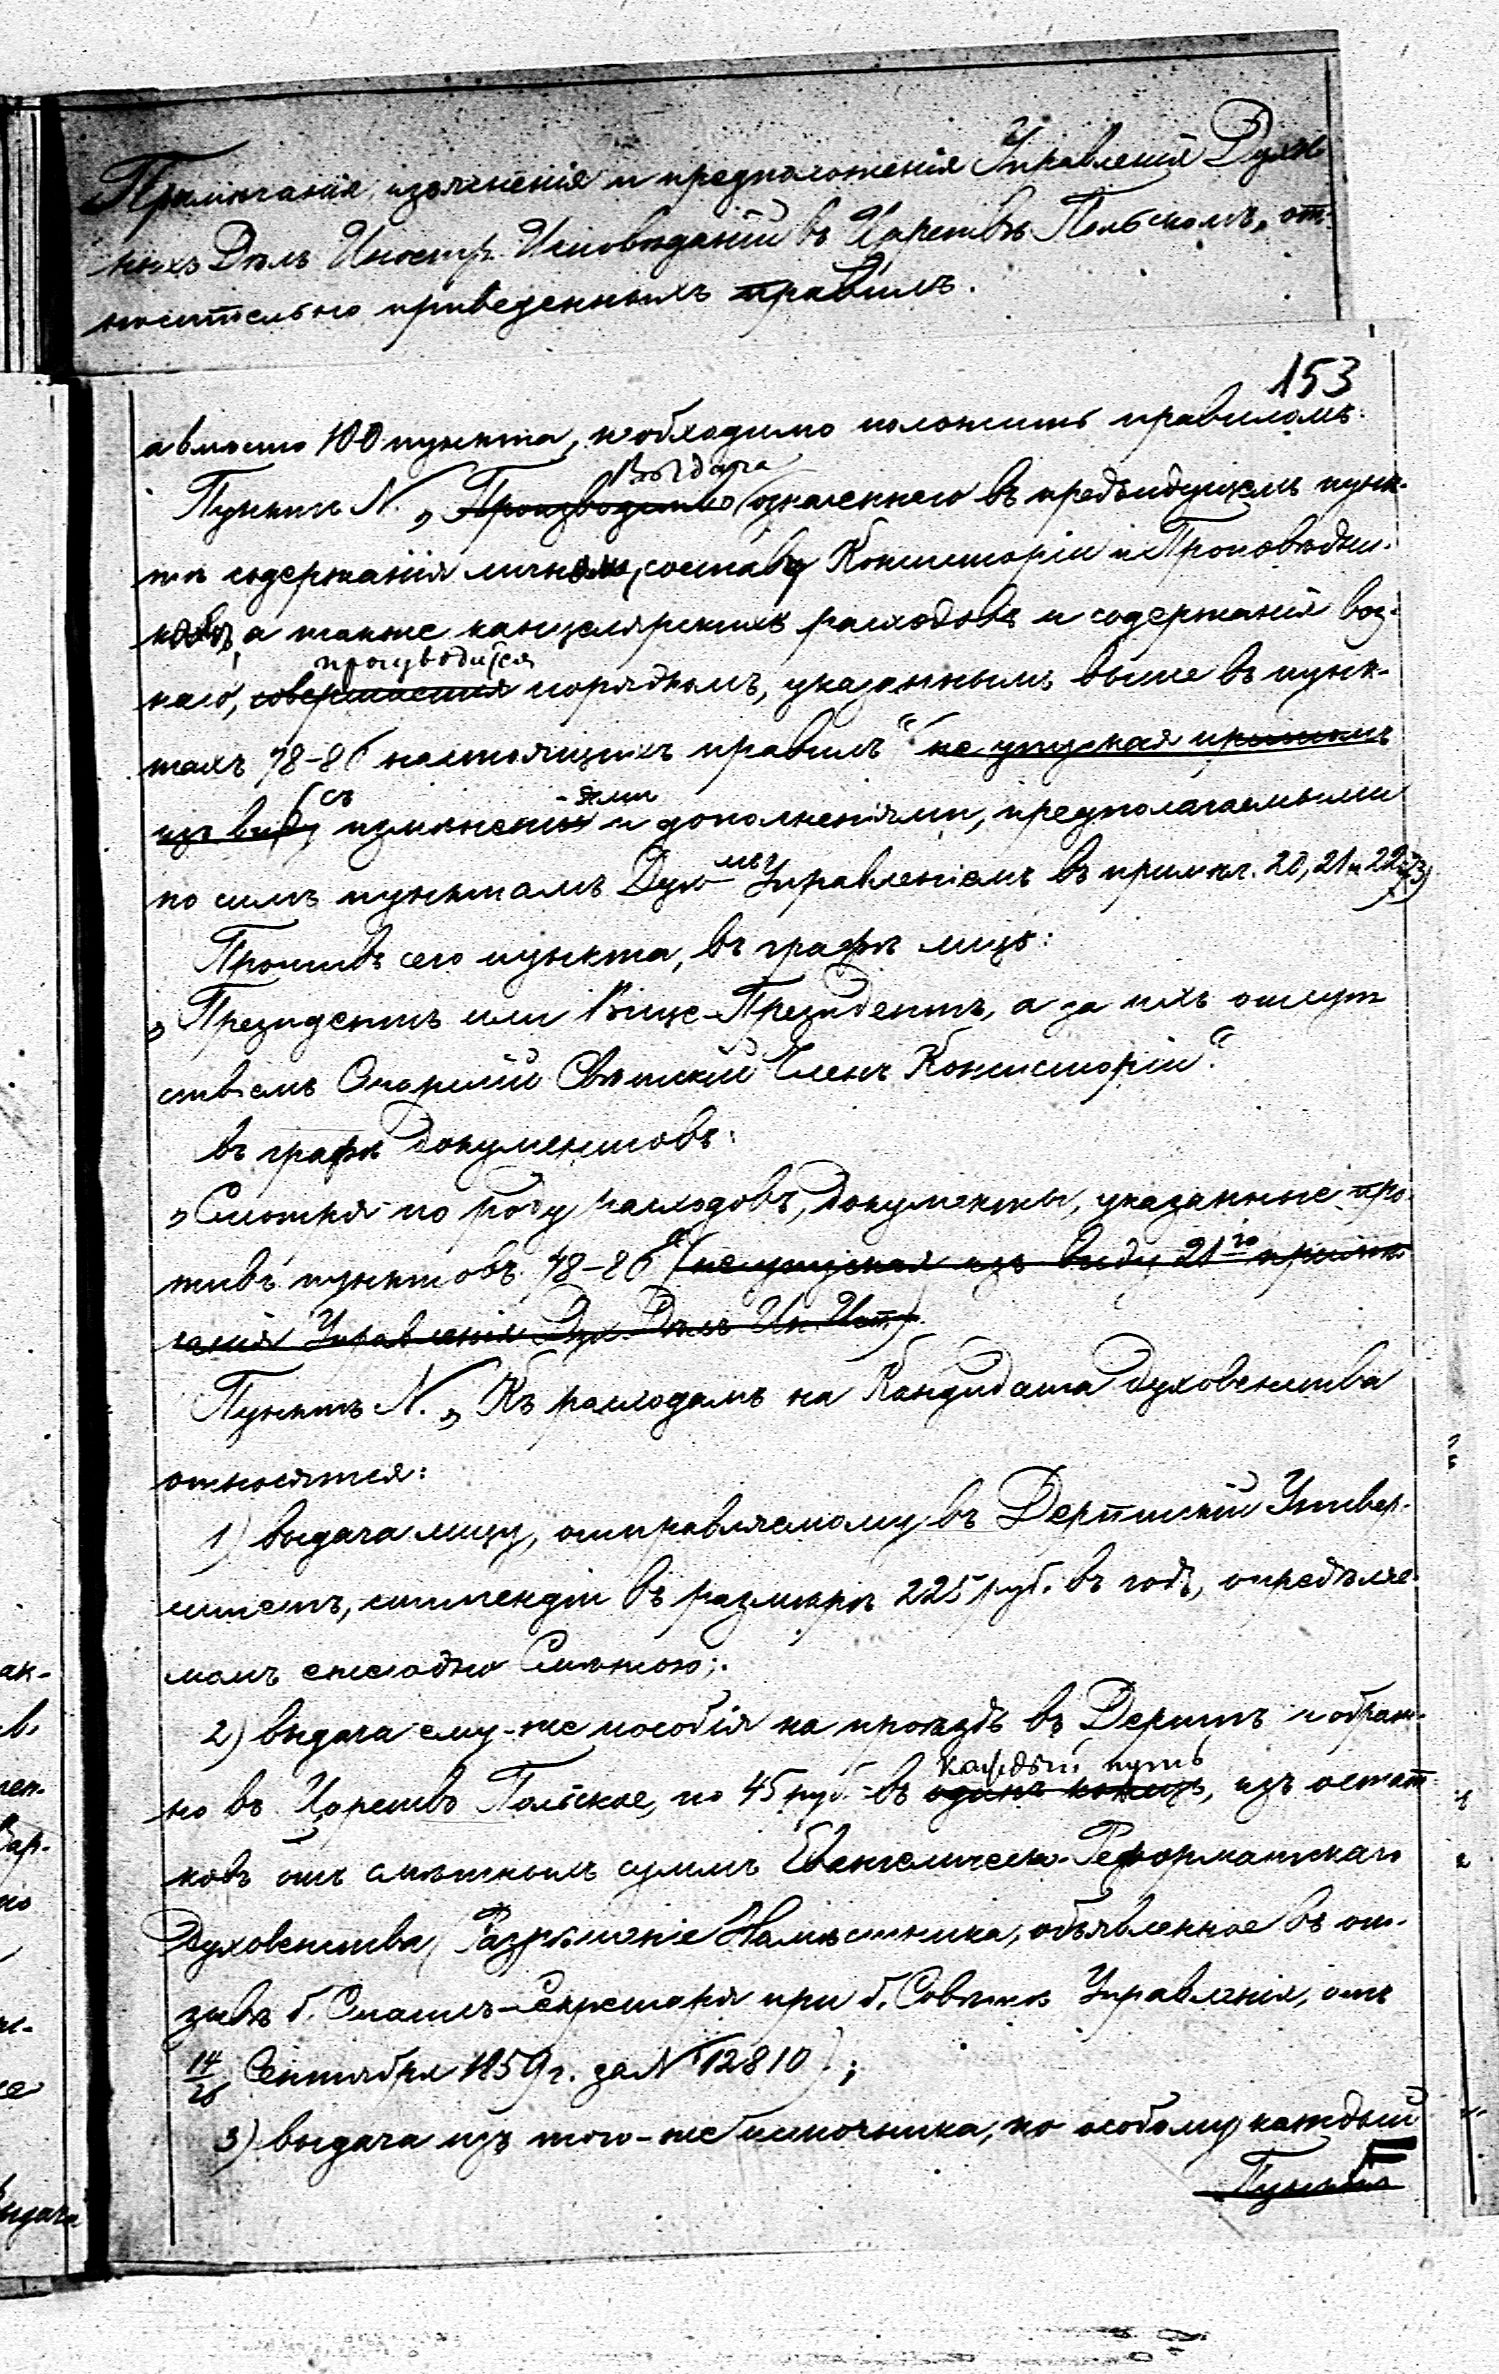 Примѣчанія, изъясненія и предположенія Управленія Духов-
ныхъ Дѣлъ Иностр. Исповѣданій въ Царствѣ Польскомъ, от-
носительно приведенныхъ правилъ.
153
а вмѣсто 100 пункта, необходимо положить правиломъ:
Выдача
Пунктъ N. „Производство означеннаго въ предъидущемъ пунк-
тѣ содержанія личному составу Консисторіи и Проповѣдни-
ковъ, а также канцелярскихъ расходовъ и содержанія воз-
производится
наго, совершается порядкомъ, указаннымъ выше въ пунк-
тахъ 78-86 настоящихъ правилъ“ не упуская при томъ
съ -ями
изъ виду измѣненія и дополненіями, предполагаемыми
по симъ пунктамъ Дух-мъ Управленіемъ въ примѣч. 20, 21 и 22
Противъ сего пункта, въ графѣ лицъ:
„Президентъ или Вице-Президентъ, а за ихъ отсут-
ствіемъ Старшій Свѣтскій Членъ Консисторіи“.
въ графѣ документовъ:
„Смотря по роду расходовъ, документы, указанные про-
тивъ пунктовъ 78-86“ (не упуская изъ виду 21го примѣ-
чанія Управленія Дух. Дѣлъ Ин. Исп.)
Пунктъ N. „Къ расходамъ на Кандидата Духовенства
относятся:
1) выдача лицу, отправляемому въ Дерптскій Универ-
ситетъ, стипендіи въ размѣрѣ 225 руб. въ годъ, опредѣляе-
момъ ежегодно Смѣтою;
2) выдача ему-же пособія на проѣздъ въ Дерптъ и обрат-
каждый путь
но въ Царство Польское, по 45 руб. въ одинъ конецъ, изъ остат-
ковъ отъ смѣтныхъ суммъ Евангелическо-Реформатскаго
Духовенства, (Разрѣшеніе Намѣстника, объявленное въ от-
зывѣ б. Статсъ-Секретаря при б. Совѣтѣ Управленія, отъ
14/26 Сентября 1859 г. за N 12810);
3) выдача изъ того-же источника, по особому каждый
Пунктъ